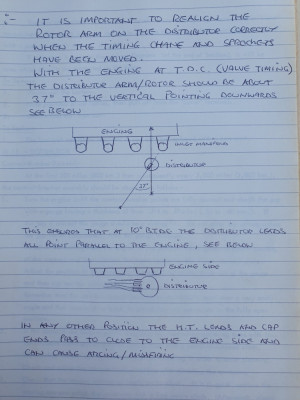 :- IT IS IMPORTANT TO REALIGN THE
ROTOR ARM ON THE DISTRIBUTOR CORRECTLY
WHEN THE TIMING CHANE AND SPROCKETS
HAVE BEEN MOVED.
WITH THE ENGINE AT T.D.C. (VALVE TIMING)
THE DISTRIBUTOR ARM/ROTOR SHOULD BE ABOUT
37° TO THE VERTICAL POINTING DOWNWARDS
SEE BELOW
ENGINE
INLET MANIFOLD
DISTRIBUTOR
37°
THIS ENSURES THAT AT 10° BTDC THE DISTRIBUTOR LEADS
ALL POINT PARALLEL TO THE ENGINE, SEE BELOW
ENGINE SIDE
DISTRIBUTOR
IN ANY OTHER POSITION THE H.T. LEADS AND CAP
ENDS PASS TO CLOSE TO THE ENGINE SIDE AND
CAN CAUSE ARCING/MISFIRING